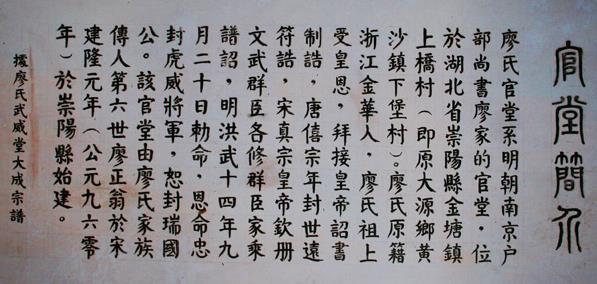 官堂簡介
廖氏官堂系明朝南京户
部尚書廖家的官堂，位
於湖北省崇陽縣金塘鎮
上橋村（即原大源鄉黄
沙鎮下堡村）。廖氏原籍
浙江金華人，廖氏祖上
受皇恩，拜接皇帝詔書
制誥，唐僖宗年封世遠
符誥，宋真宗皇帝欽册
文武群臣各修群臣家乘
譜詔，明洪武十四年九
月二十日勅命，恩命忠
封虎威將軍，恕封瑞國
公。該官堂由廖氏家族
傳人第六世廖正翁於宋
建隆元年（公元九六零
年）於崇陽縣始建。
據廖氏武威堂大成宗譜